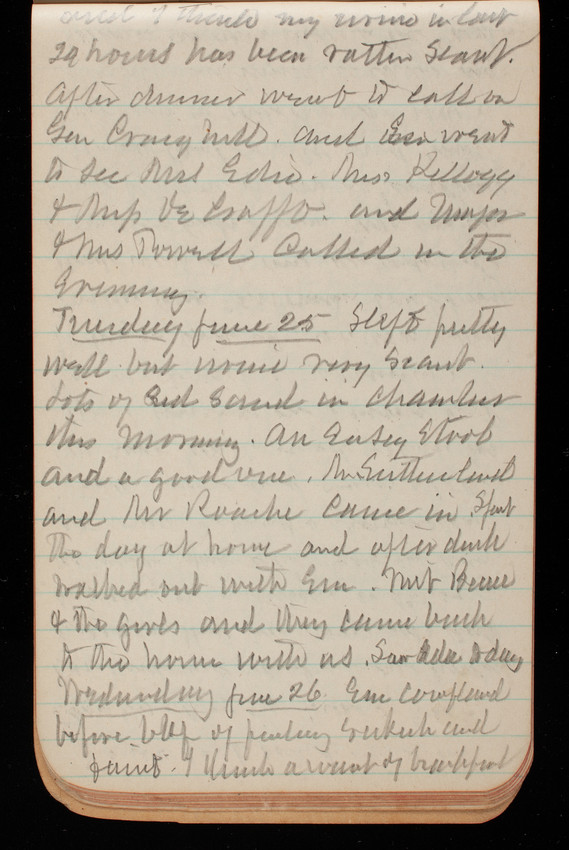 and I think my urine in last
24 hours has been rather scant.
After dinner went to call on
Gen Craighill. and Em went
to see Mrs Edie. Miss Kellogg
& Miss De Graffo. and Major
& Mrs Powell Called in the
Evening.
Tuesday June 25 Slept pretty
well but urine very scant.
Lots of Red Sand in chamber
this morning. An Easy Stool
and a good one. Mr Sutherland
and Mr Roache came in Spent
the day at home and after dark
walked out with Em. Met
& the girls and they came back
to the house with us. Saw Ada today
Wednesday June 26. Em complained
before of feeling and
faint. I think a want of breakfast